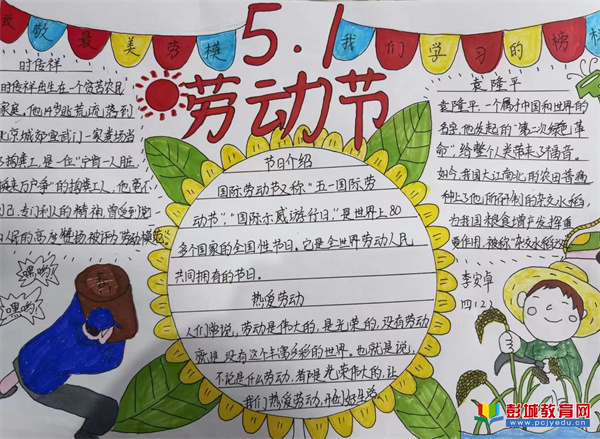 致敬最美劳模
5.1
我们学习的榜样
劳动节
时传祥
时传祥出生在一个贫苦农民
家庭,他14岁逃荒流落到
北京城如宣武门一家粪场当
了掏粪工,是一位"宁肯一人脏
换来万户净"的掏粪工人,他毫不
利己、专门利人的精神,曾受到党
和人民的高度赞扬,被评为劳动模范。
嘿哟!
嘿哟!
节日介绍
国际劳动节又称"五一国际劳
动节"、"国际示威游行日",是世界上80
多个国家的全国性节日。它是全世界劳动人民
共同拥有的节日。
热爱劳动
人们常说,劳动是伟大的,是光荣的,没有劳动
就是没有这个丰富多彩的世界。也就是说,
不论是什么劳动,都是光荣伟大的,让
我们热爱劳动,开创好生活
袁隆平
袁隆平,一个属于中国和世界的
名字,他发起的"第二次绿色革
命",给整个人类带来了福音。
如今,我国大江南北的农田普遍
种上了他所研制的杂交水稻,
为我国粮食增产发挥重
要作用,被称"杂交水稻
李安卓
四(2)
彭城教育网
www.pcjyedu.cn